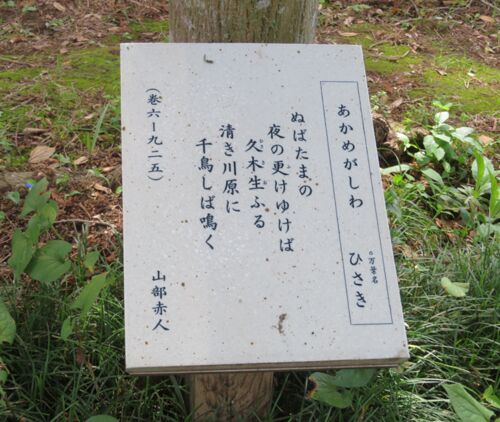 あかめがしわ
○万葉名 ひさき
ぬばたまの
夜の更けゆけば
久木生ふる
清き川原に
千鳥しば鳴く
(巻六ー九二五)
山部赤人